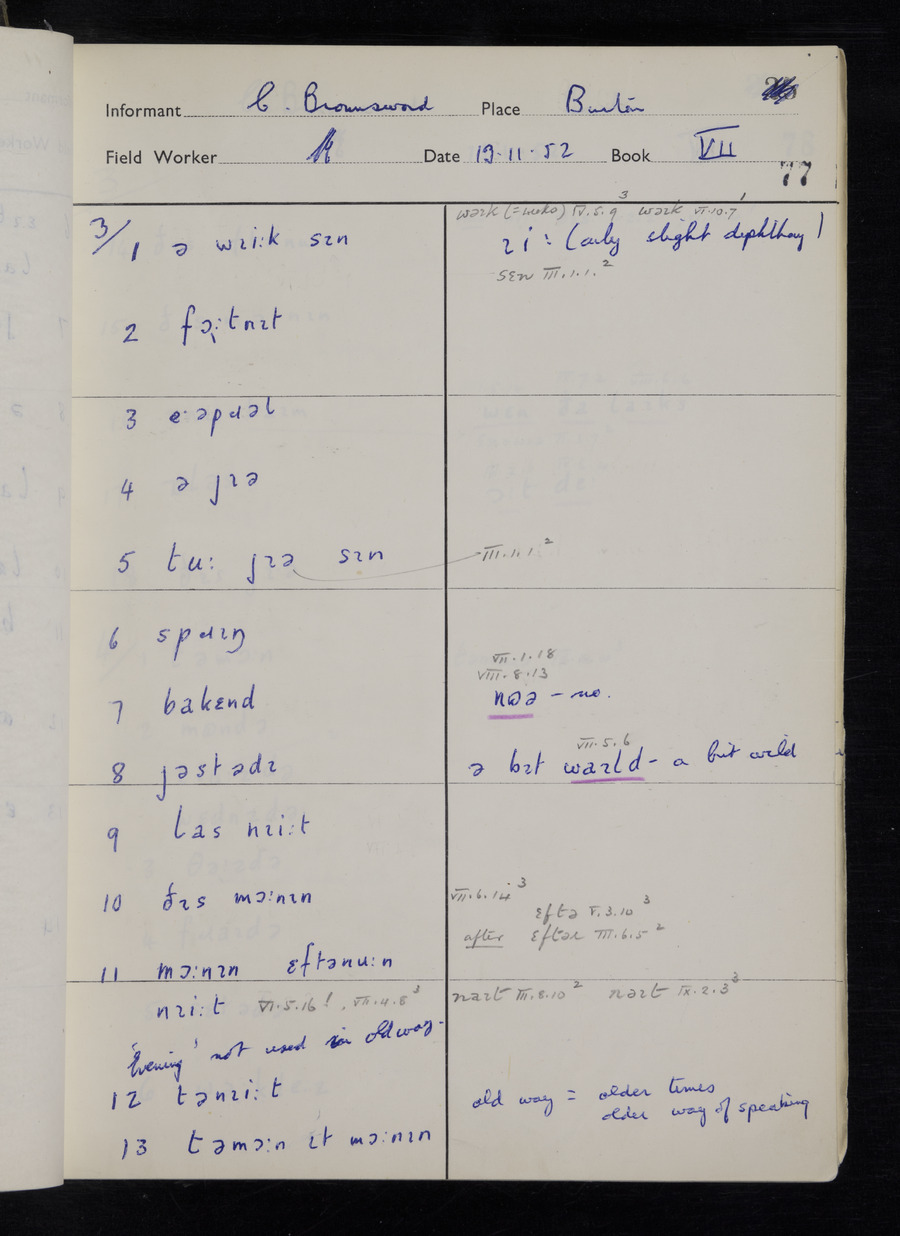 Informant C. Brownsword Place Burton
Field Worker Date 19·11·52 Book VII
77
3/1 ə wɪiːk sɪn
wəzk (=weeks) IV.5.9³ wəzk VI.10.7¹
ɪiː (only slight diphthong)
sɛn III.1.1.²
2 fɔ̣ːtnɪt
3 eːəpɹəl
4 ə jɪə
5 tuː jɪə sɪn III.1.1²
6 spɹɪŋ
VII.1.18
VIII.8.13
7 bakɛnd
nɷə – no.
VII.5.6
8 jəstədɪ
ə bɪt waɪld – a bit wild
9 las nɪiːt
10 ðɪs mɔːnɪn
VII.6.14³
ɛftə V.3.10³
after ɛftər III.6.5²
11 mɔːnɪn ɛftənuːn
nɪiːt VI.5.16! , VII.4.8³
naɪt III.8.10² nəɪt IX.2.3³
'Evening' not used in old way.
12 tənɪiːt
old way = older times
older way of speaking
13 təmɔːn ɪt mɔːnɪn